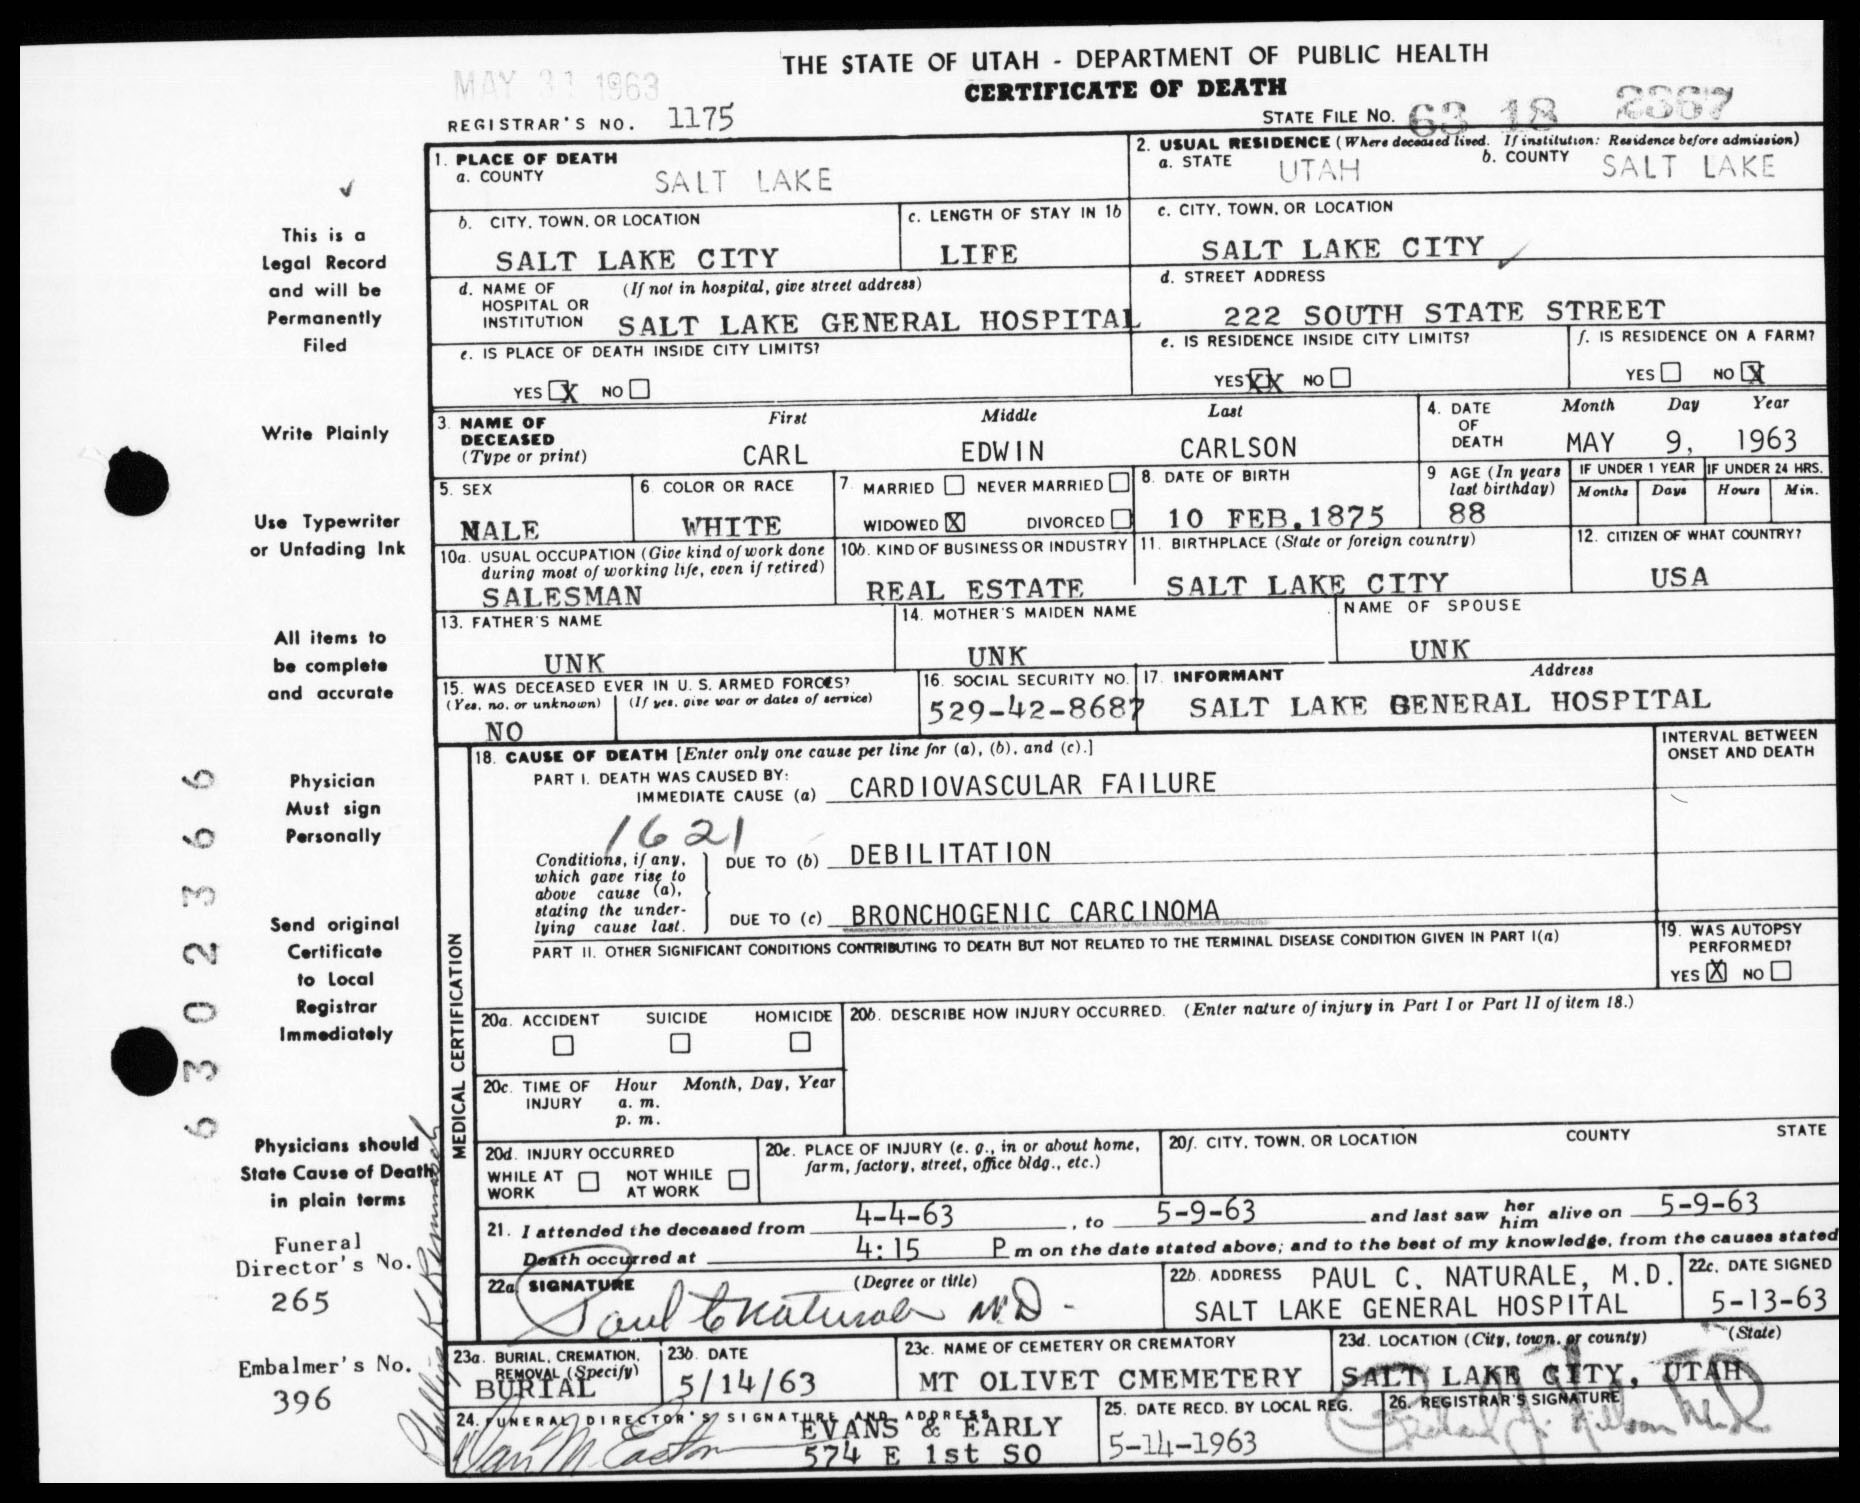 THE STATE OF UTAH - DEPARTMENT OF PUBLIC HEALTH
CERTIFICATE OF DEATH
MAY 31 1963
REGISTRAR'S NO. 1175
STATE FILE NO. 63 18 2367
This is a
Legal Record
and will be
Permanently
Filed
Write Plainly
Use Typewriter
or Unfading Ink
All items to
be complete
and accurate
Physician
Must sign
Personally
Send original
Certificate
to Local
Registrar
Immediately
Physicians should
State Cause of Death
in plain terms
Funeral
Director's No.
265
Embalmer's No.
396
6302366
1. PLACE OF DEATH
a. COUNTY SALT LAKE
2. USUAL RESIDENCE (Where deceased lived. If institution: Residence before admission)
a. STATE UTAH b. COUNTY SALT LAKE
b. CITY, TOWN, OR LOCATION
SALT LAKE CITY
c. LENGTH OF STAY IN 1b
LIFE
c. CITY, TOWN, OR LOCATION
SALT LAKE CITY
d. NAME OF (If not in hospital, give street address)
HOSPITAL OR
INSTITUTION SALT LAKE GENERAL HOSPITAL
d. STREET ADDRESS
222 SOUTH STATE STREET
e. IS PLACE OF DEATH INSIDE CITY LIMITS?
YES X NO
e. IS RESIDENCE INSIDE CITY LIMITS?
YES XX NO
f. IS RESIDENCE ON A FARM?
YES NO X
3. NAME OF
DECEASED
(Type or print)
First Middle Last
CARL EDWIN CARLSON
4. DATE
OF
DEATH
Month Day Year
MAY 9, 1963
5. SEX
MALE
6. COLOR OR RACE
WHITE
7. MARRIED NEVER MARRIED
WIDOWED X DIVORCED
8. DATE OF BIRTH
10 FEB.1875
9 AGE (In years
last birthday)
88
IF UNDER 1 YEAR
Months Days
IF UNDER 24 HRS.
Hours Min.
10a. USUAL OCCUPATION (Give kind of work done
during most of working life, even if retired)
SALESMAN
10b. KIND OF BUSINESS OR INDUSTRY
REAL ESTATE
11. BIRTHPLACE (State or foreign country)
SALT LAKE CITY
12. CITIZEN OF WHAT COUNTRY?
USA
13. FATHER'S NAME
UNK
14. MOTHER'S MAIDEN NAME
UNK
NAME OF SPOUSE
UNK
15. WAS DECEASED EVER IN U. S. ARMED FORCES?
(Yes, no, or unknown) (If yes, give war or dates of service)
NO
16. SOCIAL SECURITY NO.
529-42-8687
17. INFORMANT Address
SALT LAKE GENERAL HOSPITAL
MEDICAL CERTIFICATION
18. CAUSE OF DEATH [Enter only one cause per line for (a), (b), and (c).]
INTERVAL BETWEEN
ONSET AND DEATH
PART I. DEATH WAS CAUSED BY:
IMMEDIATE CAUSE (a) CARDIOVASCULAR FAILURE
1621
Conditions, if any,
which gave rise to
above cause (a),
stating the under-
lying cause last.
DUE TO (b) DEBILITATION
DUE TO (c) BRONCHOGENIC CARCINOMA
PART II. OTHER SIGNIFICANT CONDITIONS CONTRIBUTING TO DEATH BUT NOT RELATED TO THE TERMINAL DISEASE CONDITION GIVEN IN PART I(a)
19. WAS AUTOPSY
PERFORMED?
YES X NO
20a. ACCIDENT SUICIDE HOMICIDE
20b. DESCRIBE HOW INJURY OCCURRED. (Enter nature of injury in Part I or Part II of item 18.)
20c. TIME OF Hour Month, Day, Year
INJURY a. m.
p. m.
20d. INJURY OCCURRED
WHILE AT NOT WHILE
WORK AT WORK
20e. PLACE OF INJURY (e. g., in or about home,
farm, factory, street, office bldg., etc.)
20f. CITY, TOWN, OR LOCATION COUNTY STATE
21. I attended the deceased from 4-4-63, to 5-9-63 and last saw her him alive on 5-9-63
Death occurred at 4:15 P m on the date stated above; and to the best of my knowledge, from the causes stated
22a. SIGNATURE (Degree or title)
Paul C Naturale M.D.
22b. ADDRESS PAUL C. NATURALE, M.D.
SALT LAKE GENERAL HOSPITAL
22c. DATE SIGNED
5-13-63
23a. BURIAL, CREMATION,
REMOVAL (Specify)
BURIAL
23b. DATE
5/14/63
23c. NAME OF CEMETERY OR CREMATORY
MT OLIVET CMEMETERY
23d. LOCATION (City, town, or county) (State)
SALT LAKE CITY, UTAH
24. FUNERAL DIRECTOR'S SIGNATURE AND ADDRESS
EVANS & EARLY
574 E 1st SO
25. DATE RECD. BY LOCAL REG.
5-14-1963
26. REGISTRAR'S SIGNATURE